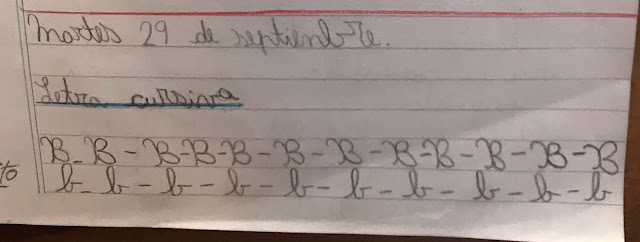 Martes 29 de septienbre.
Letra cursiva
B - B - B - B - B - B - B - B - B - B - B - B
b - b - b - b - b - b - b - b - b - b